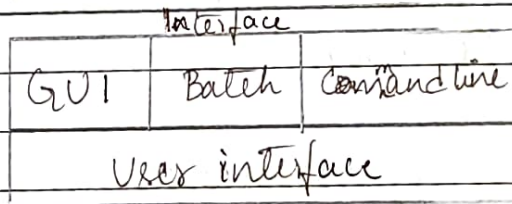 Interface
GUI Batch Command line
User interface